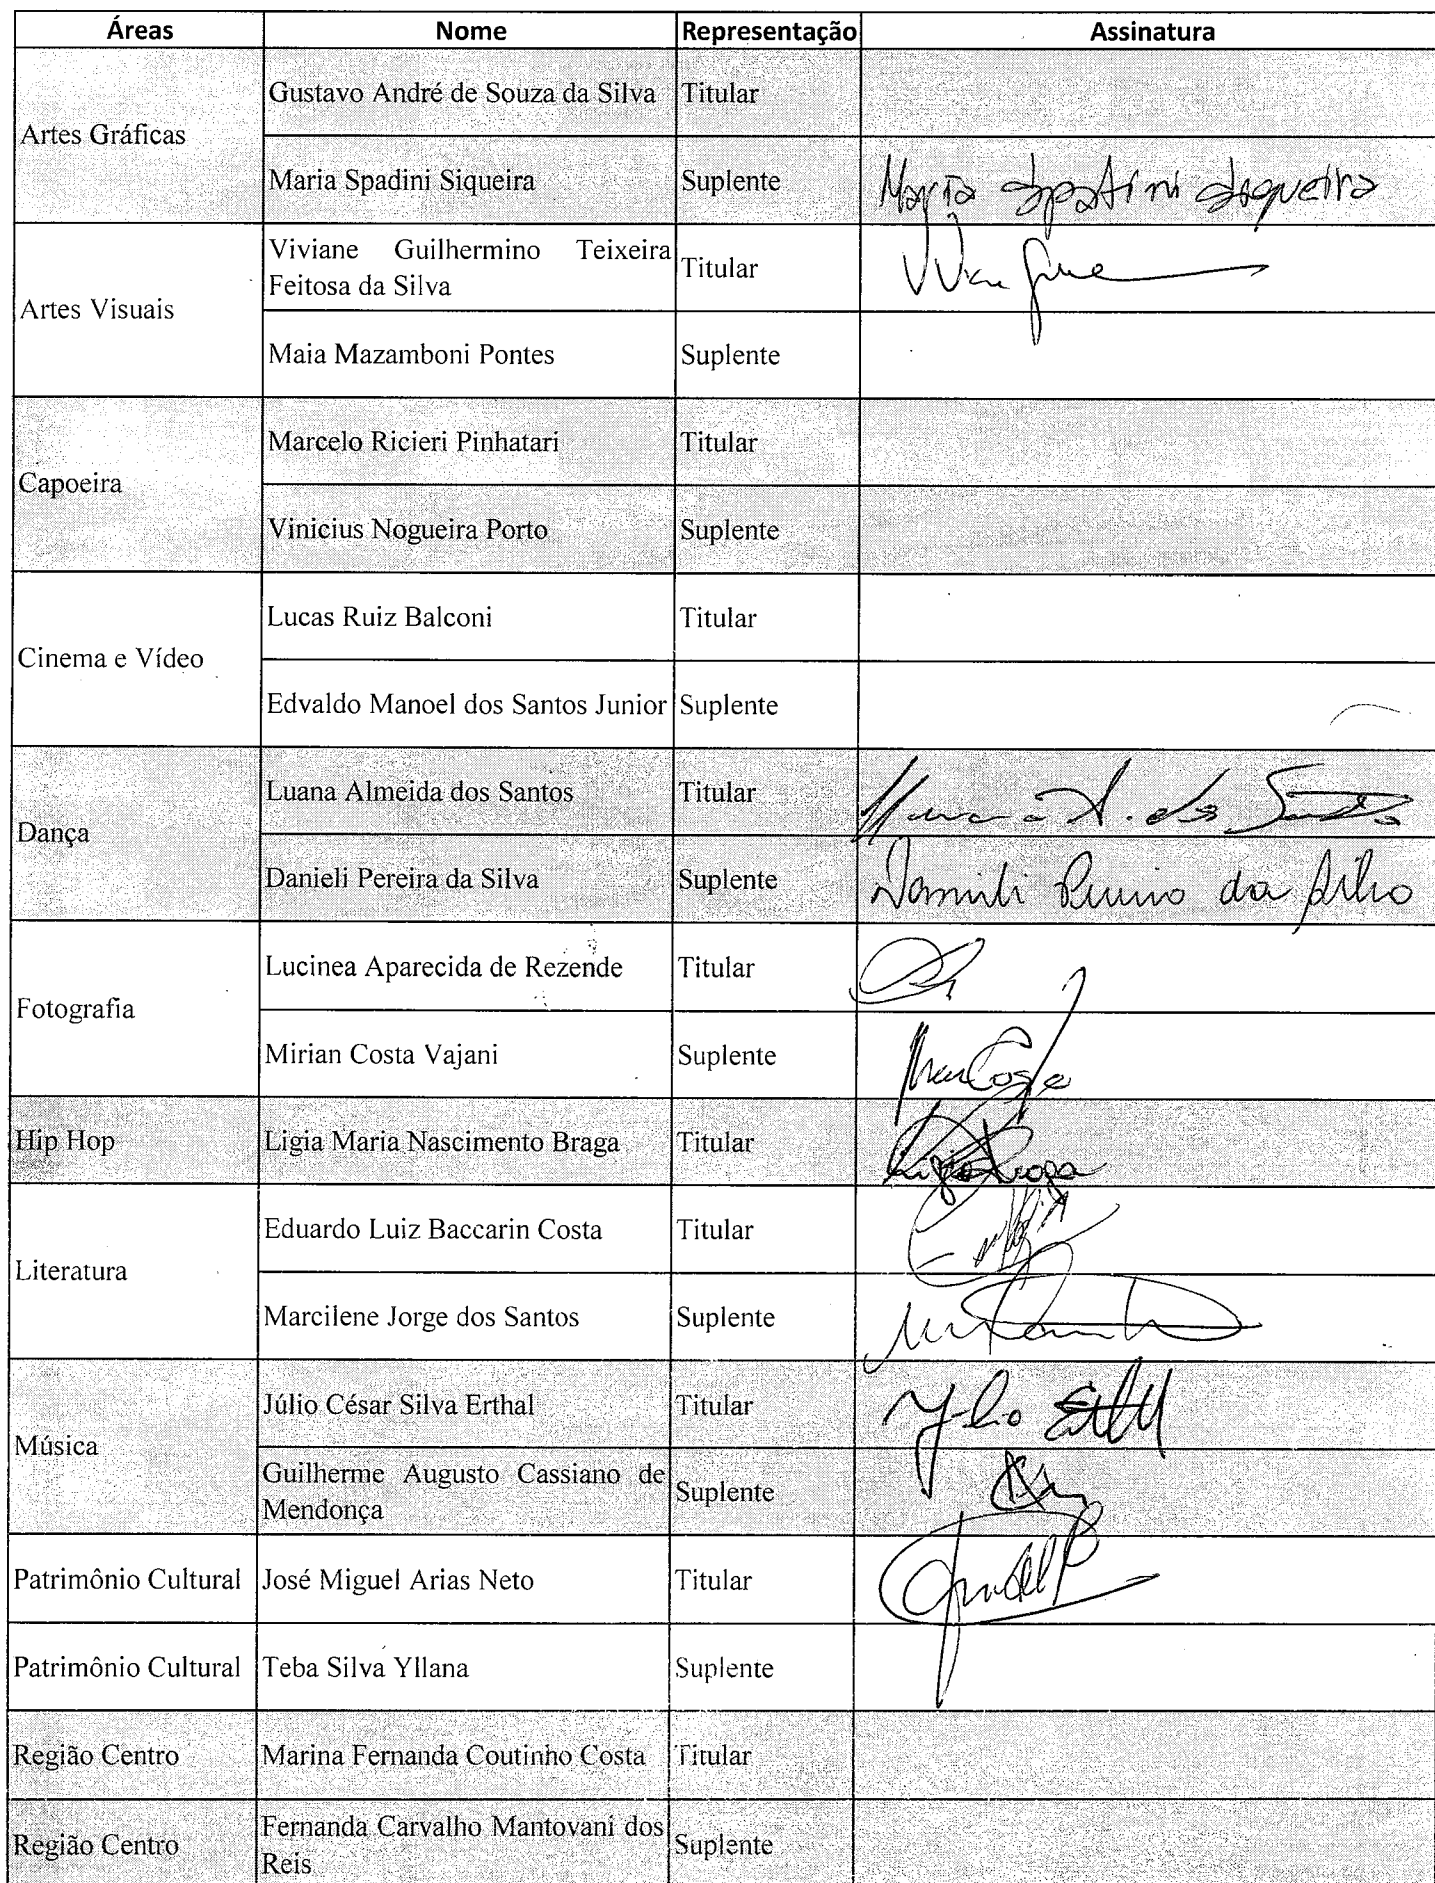 Áreas Nome Representação Assinatura
Artes Gráficas
Gustavo André de Souza da Silva Titular
Maria Spadini Siqueira Suplente Maria Spadini Siqueira
Artes Visuais
Viviane Guilhermino Teixeira
Feitosa da Silva
Titular
Maia Mazamboni Pontes Suplente
Capoeira
Marcelo Ricieri Pinhatari Titular
Vinicius Nogueira Porto Suplente
Cinema e Vídeo
Lucas Ruiz Balconi Titular
Edvaldo Manoel dos Santos Junior Suplente
Dança
Luana Almeida dos Santos Titular Luana A. dos Santos
Danieli Pereira da Silva Suplente Danieli Pereira da Silva
Fotografia
Lucinea Aparecida de Rezende Titular
Mirian Costa Vajani Suplente
Hip Hop Ligia Maria Nascimento Braga Titular Ligia Braga
Literatura
Eduardo Luiz Baccarin Costa Titular
Marcilene Jorge dos Santos Suplente
Música
Júlio César Silva Erthal Titular
Guilherme Augusto Cassiano de
Mendonça
Suplente
Patrimônio Cultural José Miguel Arias Neto Titular
Patrimônio Cultural Teba Silva Yllana Suplente
Região Centro Marina Fernanda Coutinho Costa Titular
Região Centro
Fernanda Carvalho Mantovani dos
Reis
Suplente